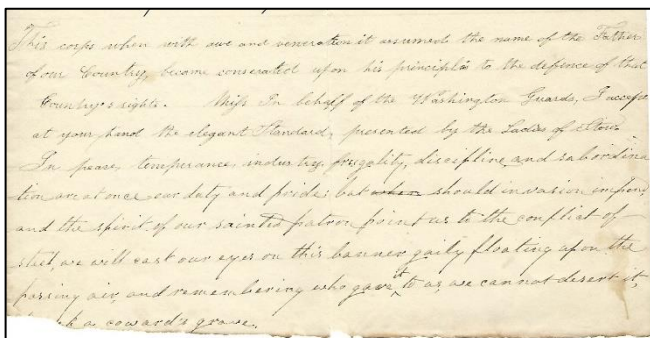 This corps when with awe and veneration it assumed the name of the Father
of our Country, became consecrated upon his principles to the defence of that
Country's rights. Miss In behalf of the Washington Guards, I accept
at your hand the elegant Standard, presented by the Ladies of
In peace, temperance, industry, frugality, discipline and subordina
tion are at once our duty and pride: but when should invasion impend,
and the spirit of our sainted patron point us to the conflict of
steel, we will cast our eyes on this banner gaily floating upon the
passing air, and remembering who gave it to us, we cannot desert it,
a coward's grave.